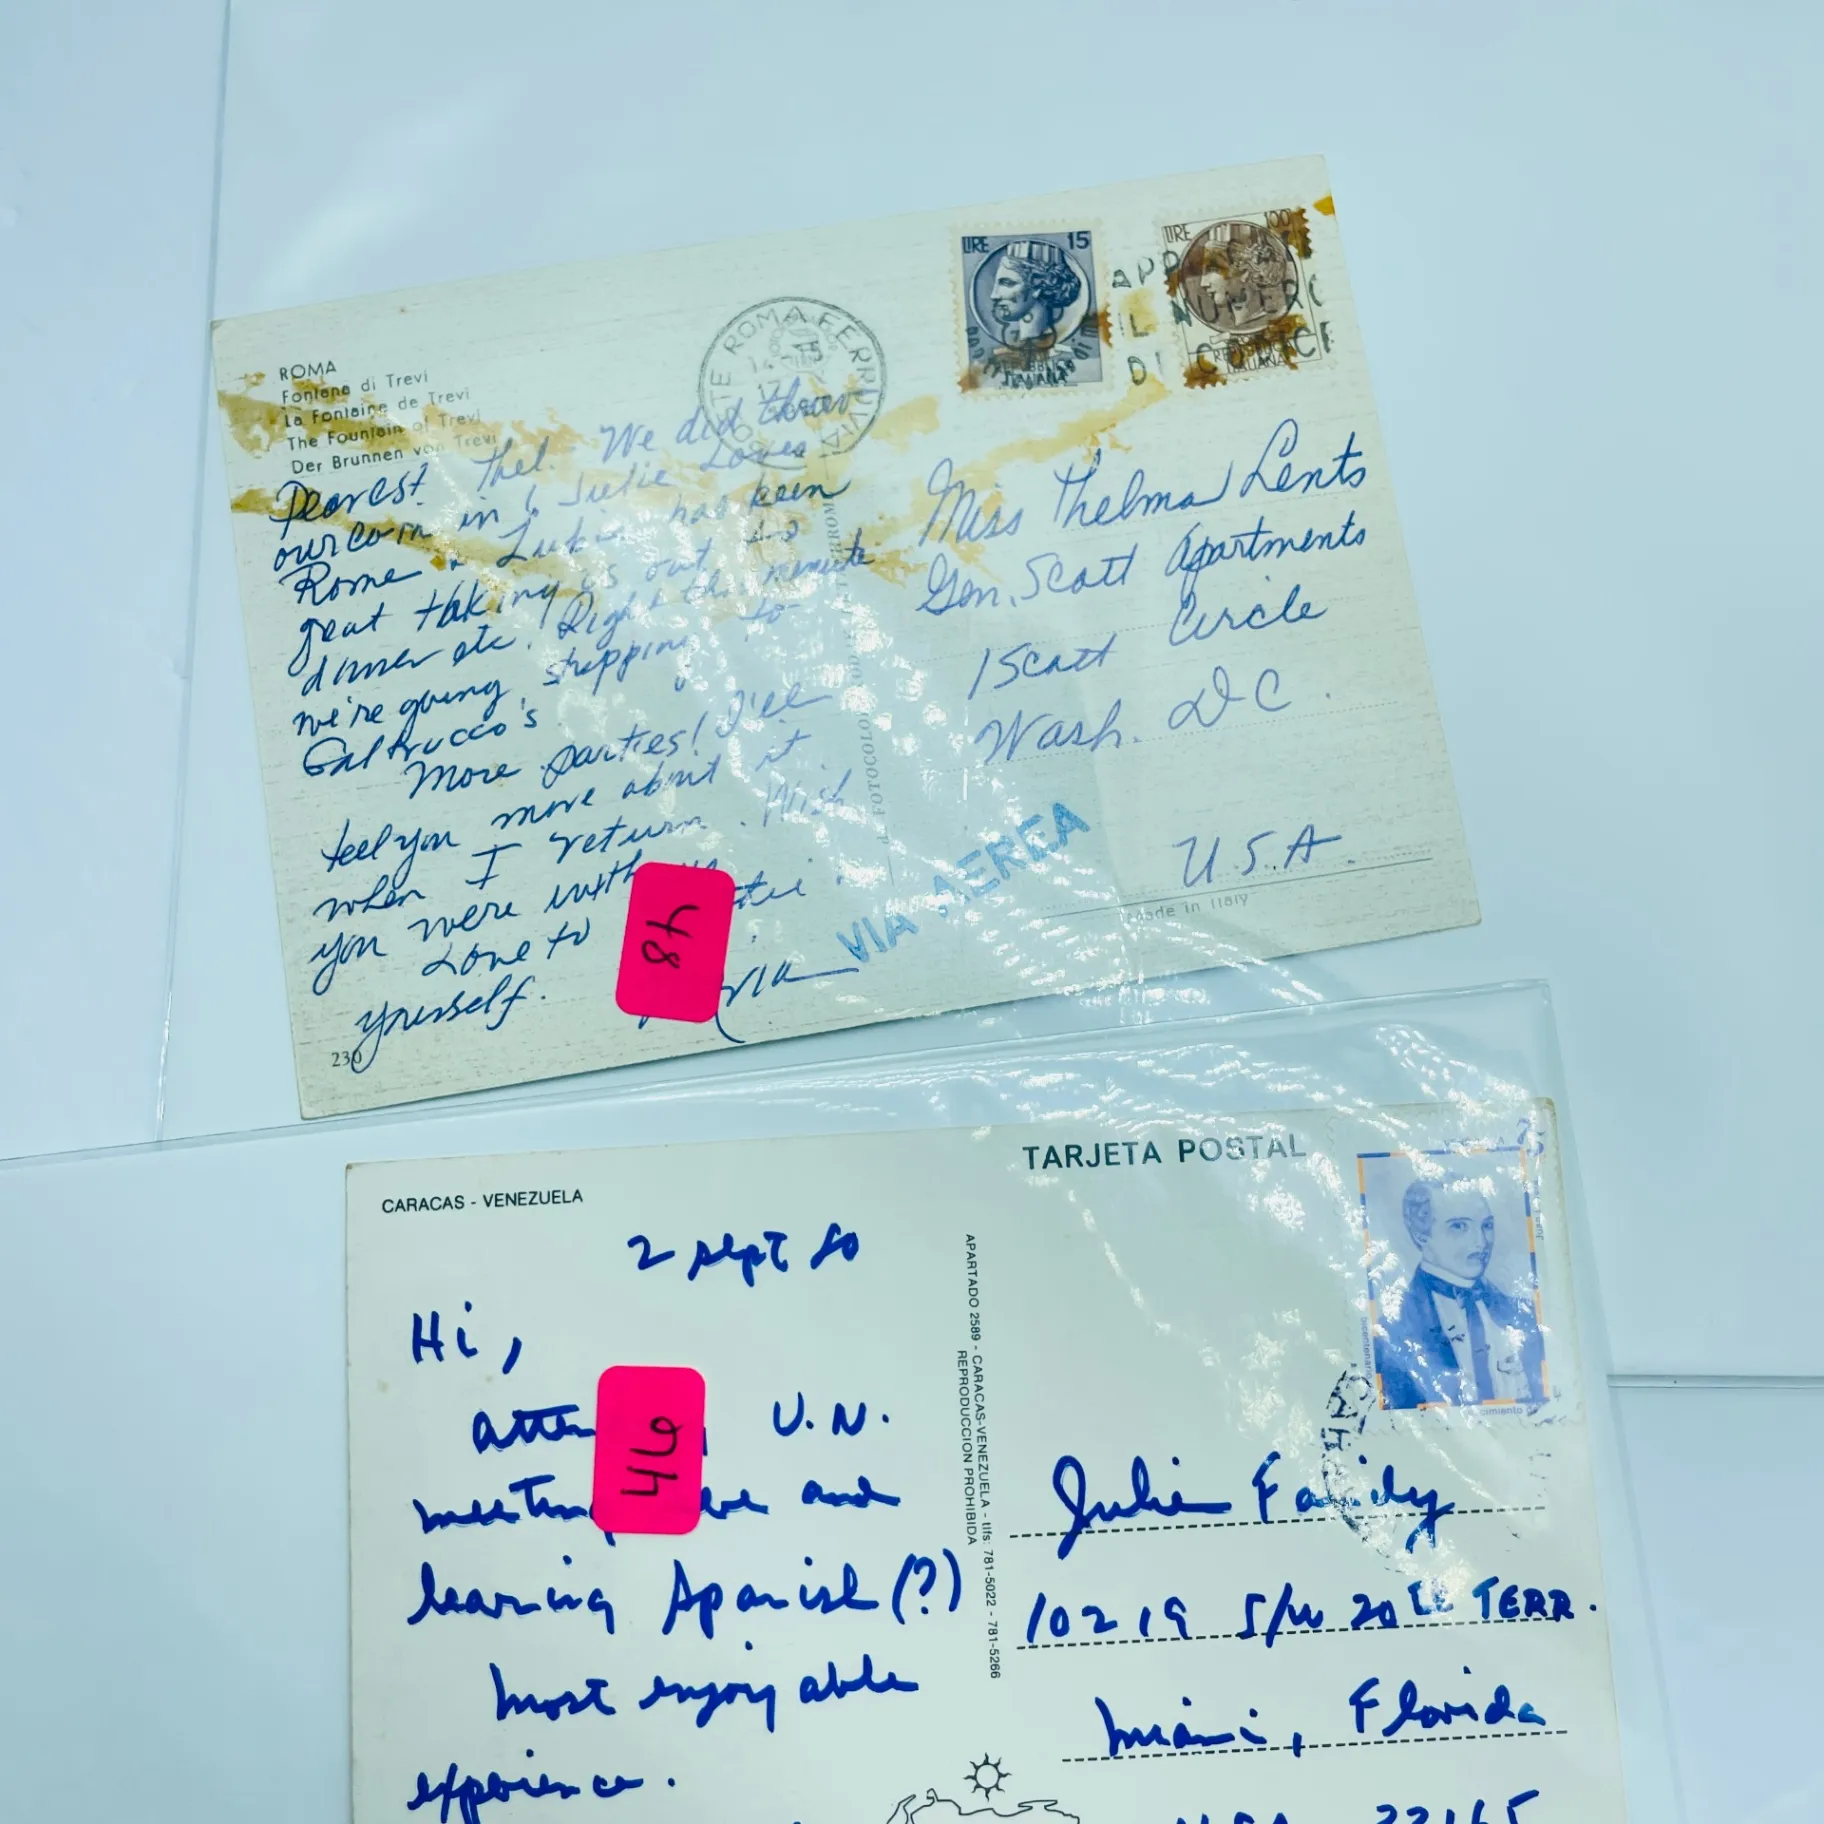 ROMA
Fontana di Trevi
La Fontaine de Trevi
The Fountain of Trevi
Der Brunnen von Trevi
POSTE ROMA FERROVIA
LIRE 15
LIRE 100
IL NUMERO
DI CODICE
REPUBBLICA ITALIANA
Dearest Thel. We did throw
our coin in & Julie Loves
Rome & has been
great taking us out to
dinner etc! Right this minute
we're going shopping to
Galtrucco's
More parties! I'll
tell you more about it
when I return. Wish
you were with
Love to
yourself.
230
Miss Thelma Lents
Gen. Scott Apartments
1 Scott Circle
Wash. DC
U.S.A.
VIA AEREA
Made in Italy
48
CARACAS - VENEZUELA
TARJETA POSTAL
2 Sept 80
Hi,
U.N.
and
learning Spanish (?)
most enjoyable
experience.
46
APARTADO 2589 - CARACAS-VENEZUELA - tlfs: 781-5022 - 781-5266
REPRODUCCION PROHIBIDA
Julie
10219 S/W 20 TERR.
Miami, Florida